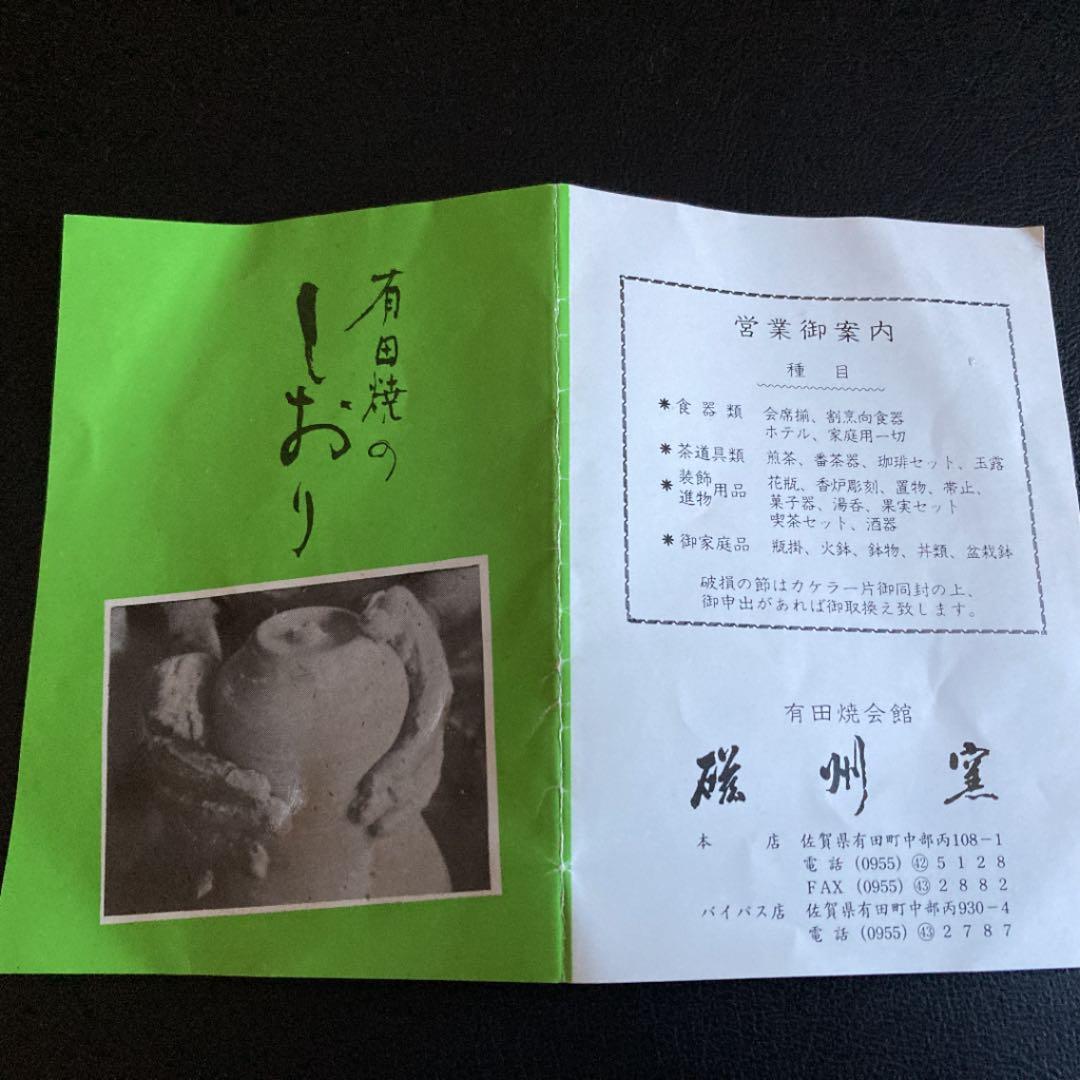 有田焼の
しおり
営業御案内
種目
＊食器類 会席揃、割烹向食器
ホテル、家庭用一切
＊茶道具類 煎茶、番茶器、珈琲セット、玉露
＊装飾進物用品 花瓶、香炉彫刻、置物、帯止、
菓子器、湯呑、果実セット
喫茶セット、酒器
＊御家庭品 瓶掛、火鉢、鉢物、丼類、盆栽鉢
破損の節はカケラ一片御同封の上、
御申出があれば御取換え致します。
有田焼会館
磁州窯
本店 佐賀県有田町中部丙108－1
電話 (0955) ㊷5128
FAX (0955) ㊸2882
バイパス店 佐賀県有田町中部丙930－4
電話 (0955) ㊸2787